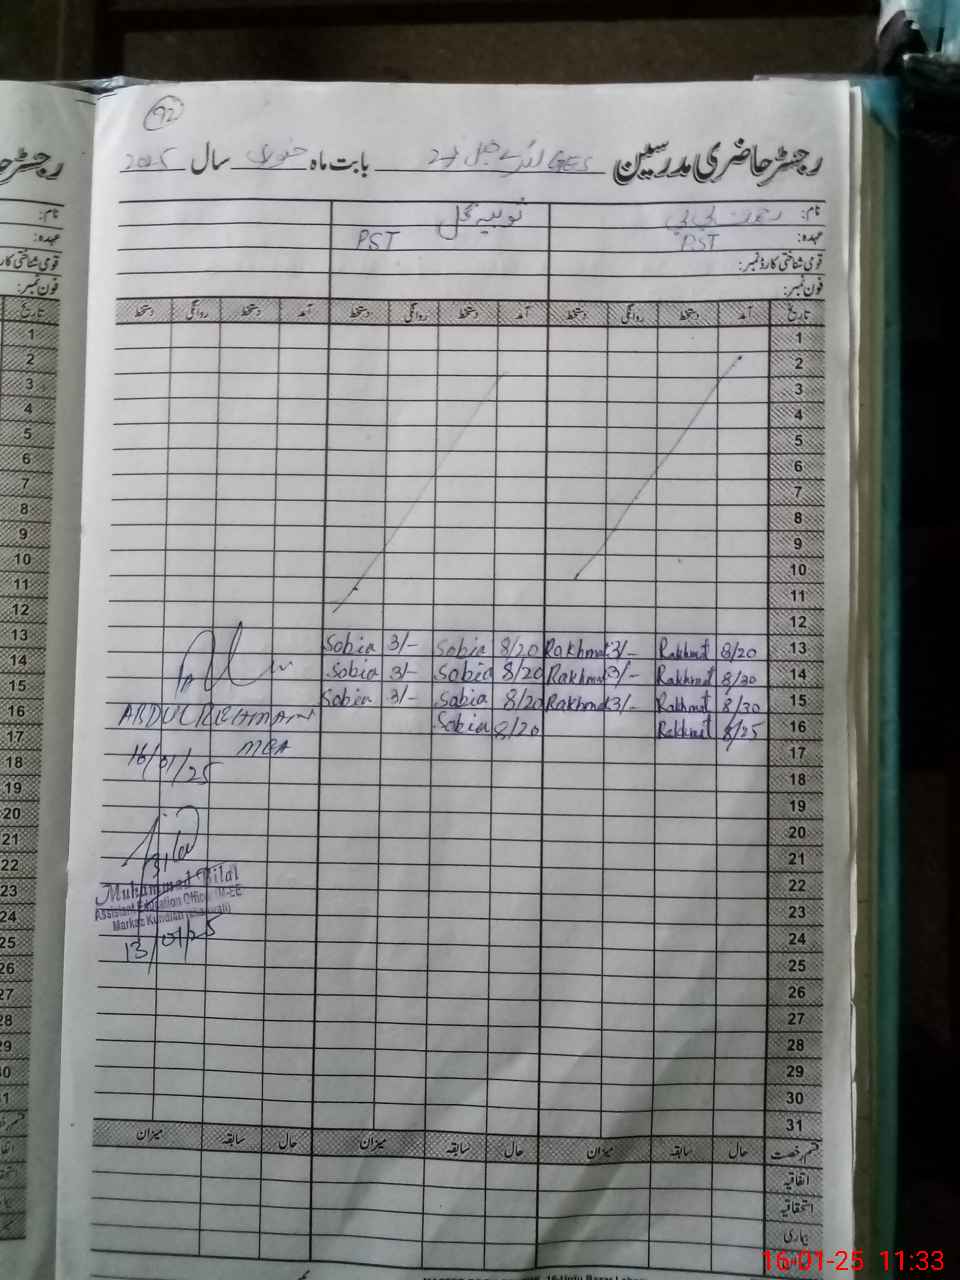 92
رجسٹر حاضری مدرسین GES بابت ماہ جنوری سال 2025
نام: رحمت بی بی ثوبیہ گل
عہدہ: PST PST
قومی شناختی کارڈ نمبر:
فون نمبر:
تاریخ آمد دستخط روانگی دستخط آمد دستخط روانگی دستخط آمد دستخط روانگی دستخط
1
2
3
4
5
6
7
8
9
10
11
12
Sobia 3/- Sobia 8/20 Rakhmat 3/- Rakhmat 8/20 13
Sobia 3/- Sobia 8/20 Rakhmat 3/- Rakhmat 8/30 14
Sobia 3/- Sobia 8/20 Rakhmat 3/- Rakhmat 8/30 15
Sobia 8/20 Rakhmat 8/25 16
ABDUL REHMAN
MEA
16/01/25
17
18
19
20
21
Muhammad Bilal
Assistant Education Officer (M-EE
Markaz Kundian (Mianwali)
13/01/25
22
23
24
25
26
27
28
29
30
31
قسم رخصت حال سابقہ میزان حال سابقہ میزان حال سابقہ میزان
اتفاقیہ
استحقاقیہ
بیماری
16-01-25 11:33